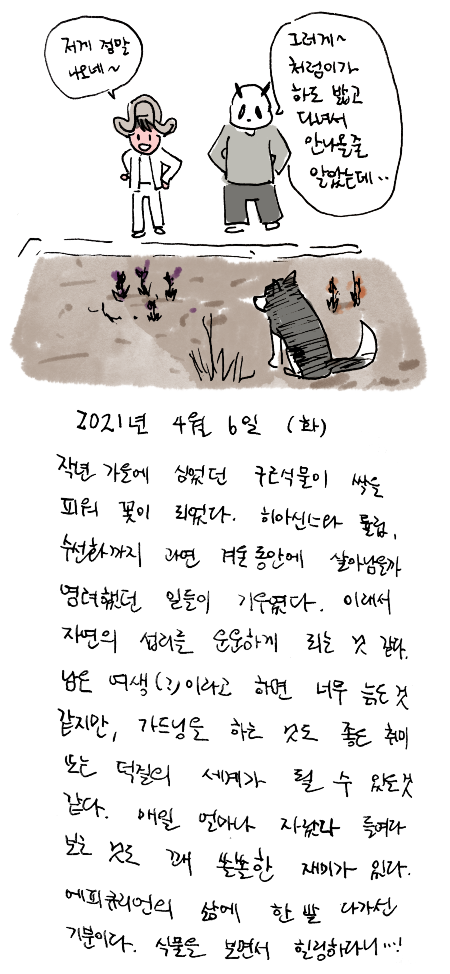 저게 정말
나오네~
그러게~
처럼이가
하도 밟고
다녀서
안나올줄
알았는데..
2021년 4월 6일 (화)
작년 가을에 심었던 구근식물이 싹을
피워 꽃이 되었다. 히아신스와 튤립,
수선화까지 과연 겨울동안에 살아남을까
염려했던 일들이 기우였다. 이래서
자연의 섭리를 운운하게 되는 것 같다.
남은 여생(?)이라고 하면 너무 늙은것
같지만, 가드닝을 하는 것도 좋은 취미
또는 덕질의 세계가 될 수 있는것
같다. 매일 얼마나 자랐나 들여다
보는 것도 꽤 쏠쏠한 재미가 있다.
에피큐리언의 삶에 한 발 다가선
기분이다. 식물을 보면서 힐링하다니...!